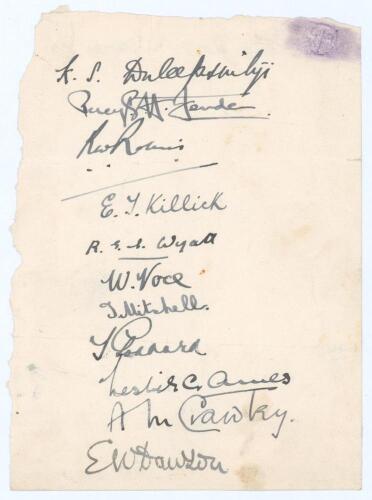 K. S. Duleepsinhji
Percy G. H. Fender.
R W V Robins
E. T. Killick
R. E. S. Wyatt
W. Voce
T. Mitchell.
T. Goddard
Leslie G. Ames
A M Crawley.
E W Dawson